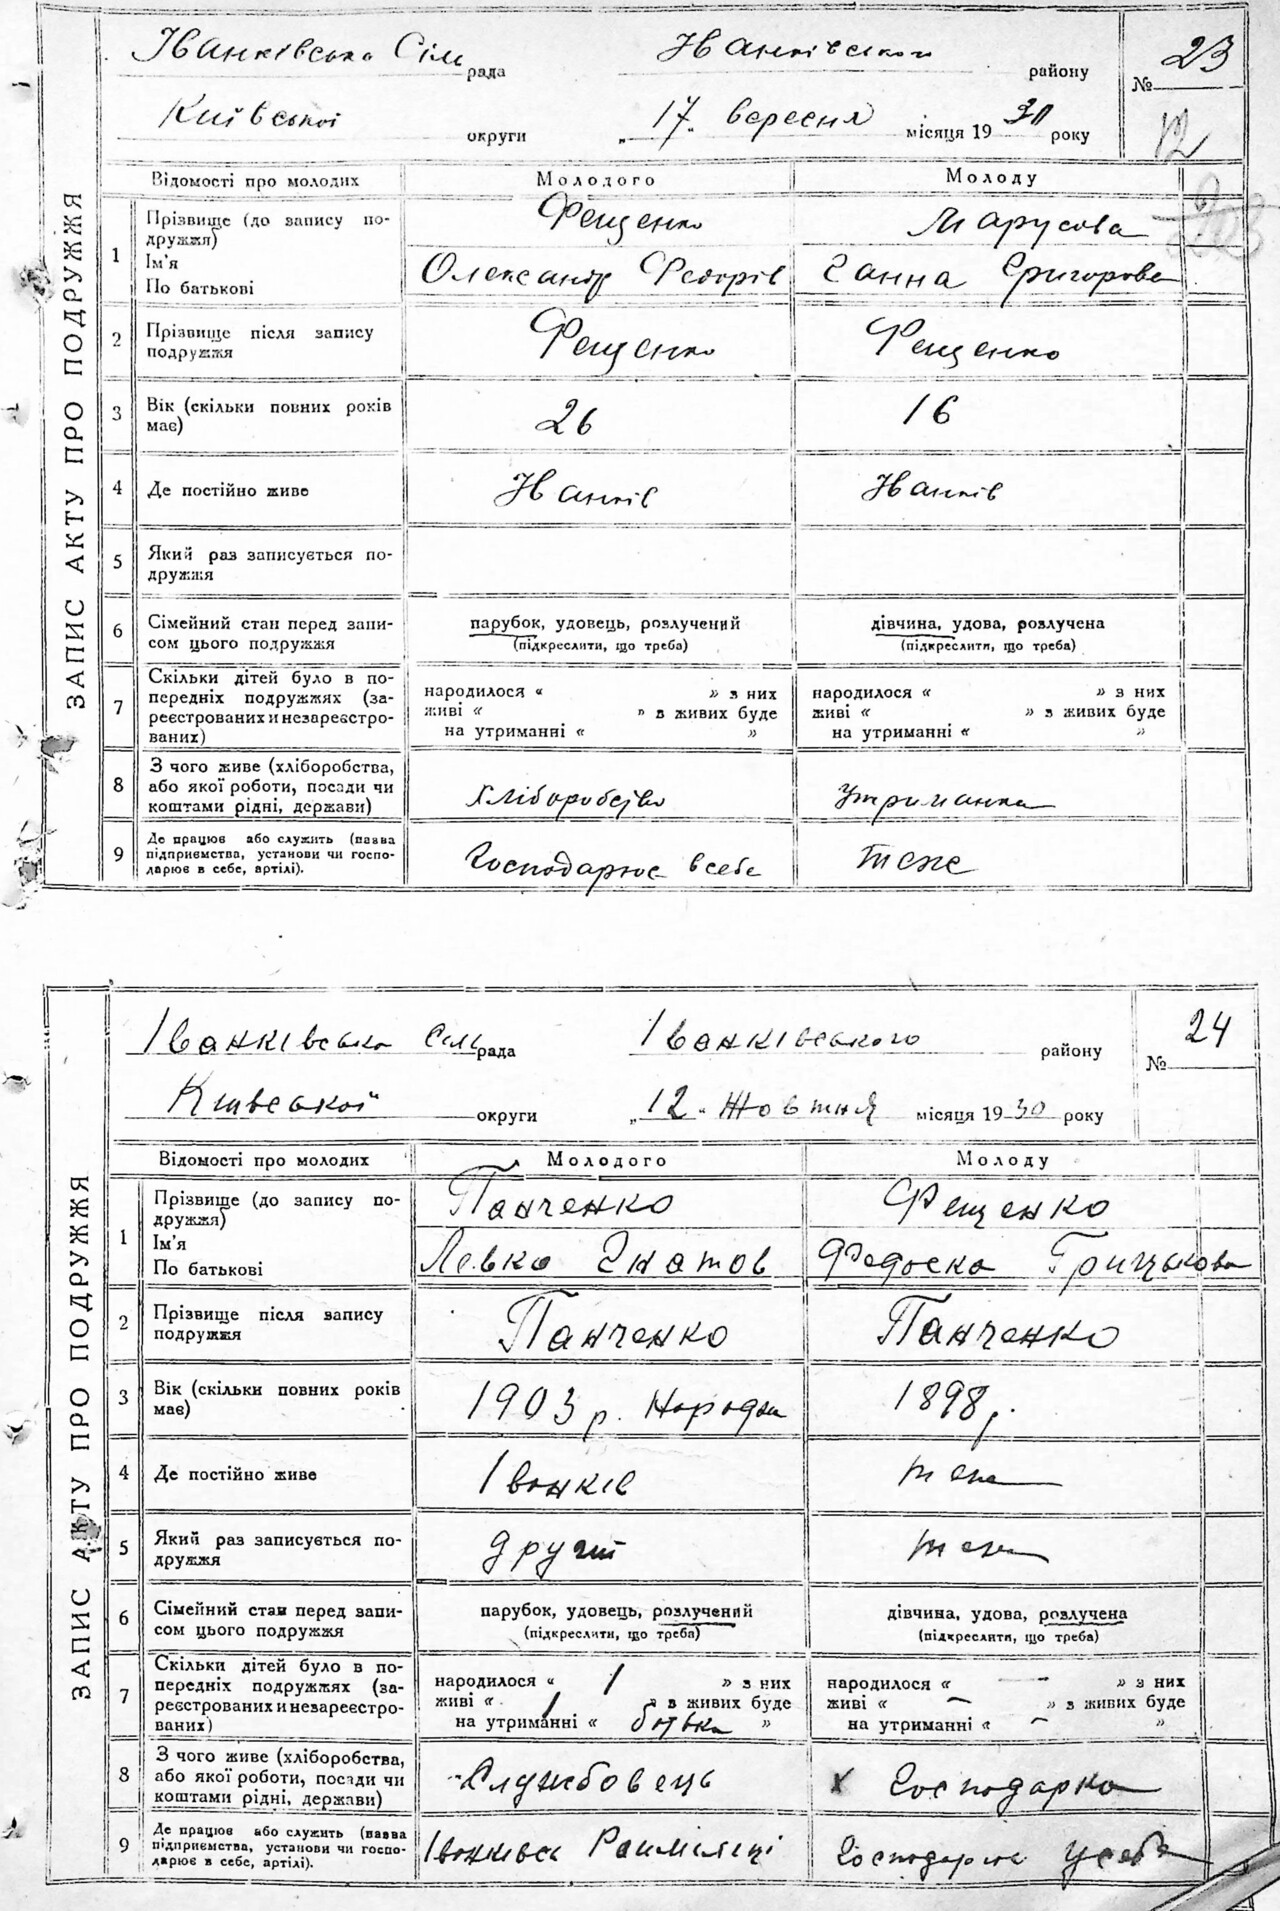 ЗАПИС АКТУ ПРО ПОДРУЖЖЯ
Іванківська Сіль рада Іванківського району № 23
Київської округи „17„ вересня місяця 1930 року 12
Відомості про молодих Молодого Молоду
1 Прізвище (до запису по-
дружжя)
Ім'я
По батькові
Фещенко Марусова
Олександр Федорів Ганна Григорова
2 Прізвище після запису
подружжя
Фещенко Фещенко
3 Вік (скільки повних років
має)
26 16
4 Де постійно живе Іванків Іванків
5 Який раз записується по-
дружжя
6 Сімейний стан перед запи-
сом цього подружжя
парубок, удовець, розлучений дівчина, удова, розлучена
(підкреслити, що треба) (підкреслити, що треба)
7 Скільки дітей було в по-
передніх подружжях (за-
реєстрованих и незареєстро-
ваних)
народилося « » з них народилося « » з них
живі « » в живих буде живі « » з живих буде
на утриманні « » на утриманні « »
8 З чого живе (хліборобства,
або якої роботи, посади чи
коштами рідні, держави)
хліборобство утриманка
9 Де працює або служить (назва
підприємства, установи чи госпо-
дарює в себе, артілі).
Господарює в себе теж
ЗАПИС АКТУ ПРО ПОДРУЖЖЯ
Іванківська Сіль рада Іванківського району № 24
Київської округи „12„ Жовтня місяця 1930 року
Відомості про молодих Молодого Молоду
1 Прізвище (до запису по-
дружжя)
Ім'я
По батькові
Панченко Фещенко
Левко Гнатов Федоска Грицькова
2 Прізвище після запису
подружжя
Панченко Панченко
3 Вік (скільки повних років
має)
1903 р. народж 1898 р.
4 Де постійно живе Іванків теж
5 Який раз записується по-
дружжя
другий теж
6 Сімейний стан перед запи-
сом цього подружжя
парубок, удовець, розлучений дівчина, удова, розлучена
(підкреслити, що треба) (підкреслити, що треба)
7 Скільки дітей було в по-
передніх подружжях (за-
реєстрованих и незареєстро-
ваних)
народилося « 1 » з них народилося « — » з них
живі « 1 » в живих буде живі « — » з живих буде
на утриманні « батька » на утриманні « — »
8 З чого живе (хліборобства,
або якої роботи, посади чи
коштами рідні, держави)
Службовець х Господарка
9 Де працює або служить (назва
підприємства, установи чи госпо-
дарює в себе, артілі).
Господарює у себе